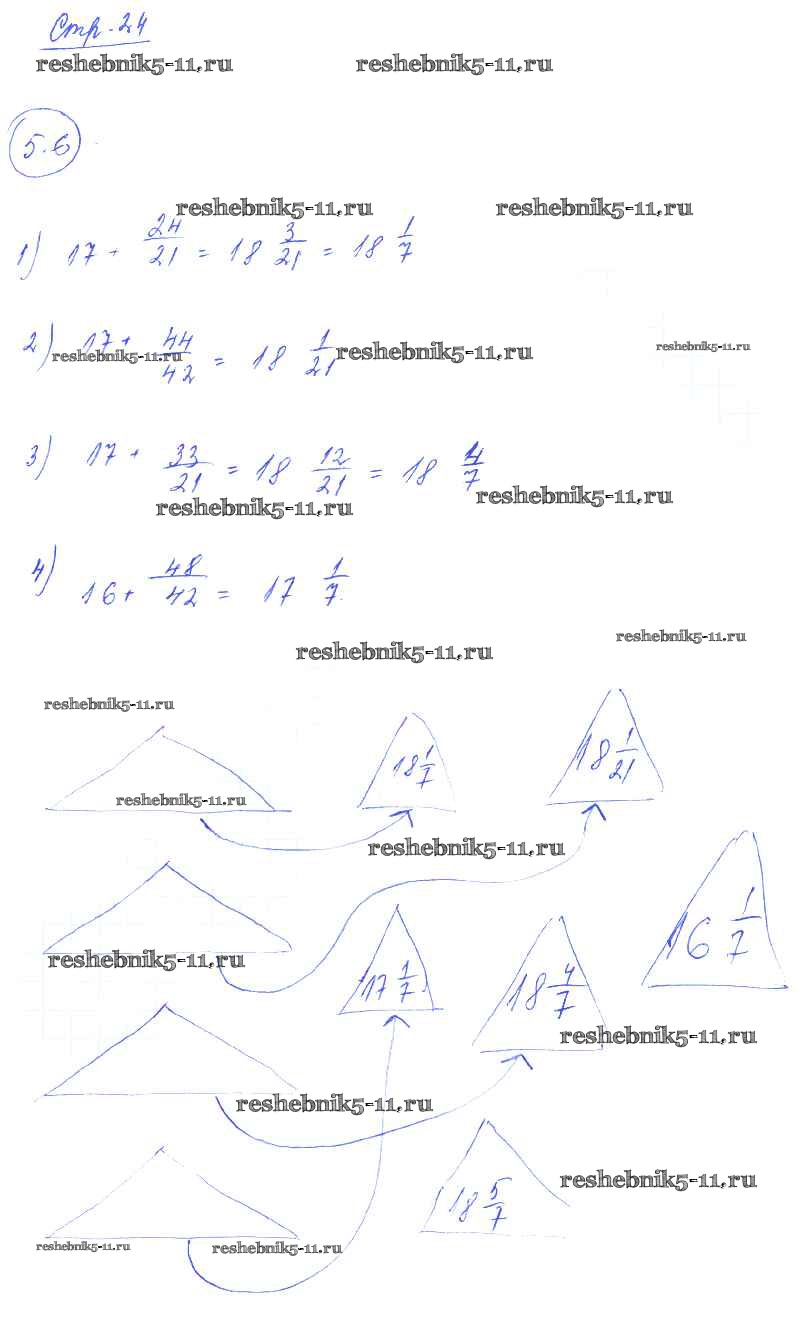 Стр. 24
reshebnik5-11.ru reshebnik5-11.ru
5.6
reshebnik5-11.ru reshebnik5-11.ru
1) 17 + 24/21 = 18 3/21 = 18 1/7
2) 17 + 44/42 = 18 1/21
reshebnik5-11.ru reshebnik5-11.ru reshebnik5-11.ru
3) 17 + 33/21 = 18 12/21 = 18 4/7
reshebnik5-11.ru reshebnik5-11.ru
4) 16 + 48/42 = 17 1/7
reshebnik5-11.ru reshebnik5-11.ru
reshebnik5-11.ru
18 1/7 18 1/21
reshebnik5-11.ru
reshebnik5-11.ru
16 1/7
reshebnik5-11.ru
17 1/7 18 4/7
reshebnik5-11.ru
reshebnik5-11.ru
18 5/7 reshebnik5-11.ru
reshebnik5-11.ru reshebnik5-11.ru